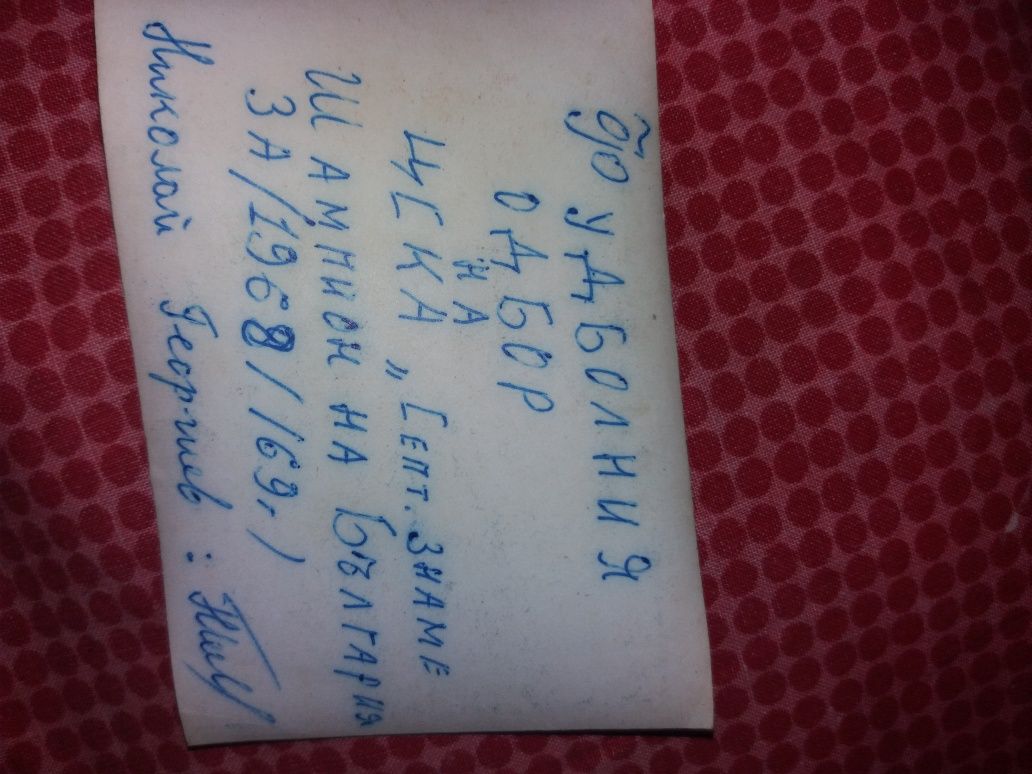 Футболния
ОДБОР
НА
ЦСКА „СЕПТ. ЗНАМЕ
ШАМПИОН НА БЪЛГАРИЯ
ЗА /1968/169г/
Николай Георгиев :